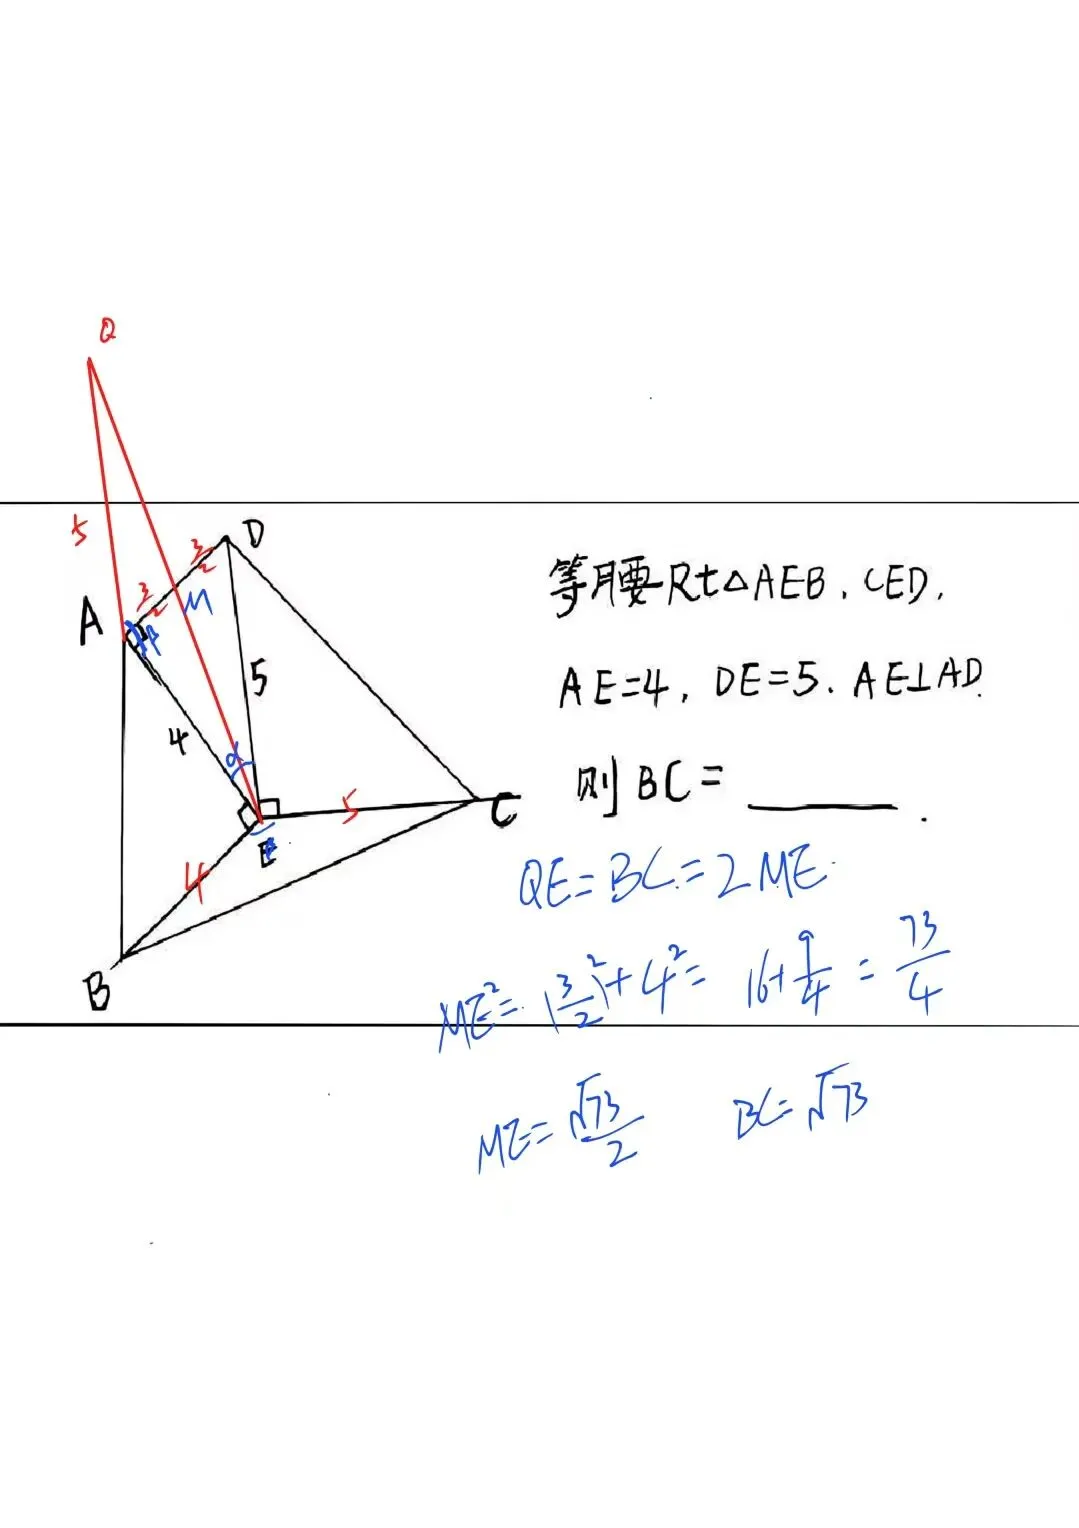 Q
5
D
3/2
3/2
M
A
β
5
4
α
5
C
E
4
B
等腰Rt△AEB，CED，
AE=4，DE=5，AE⊥AD.
则BC=______.
QE=BC=2ME.
ME²=(3/2)²+4²=16+9/4=73/4
ME=√73/2 BC=√73